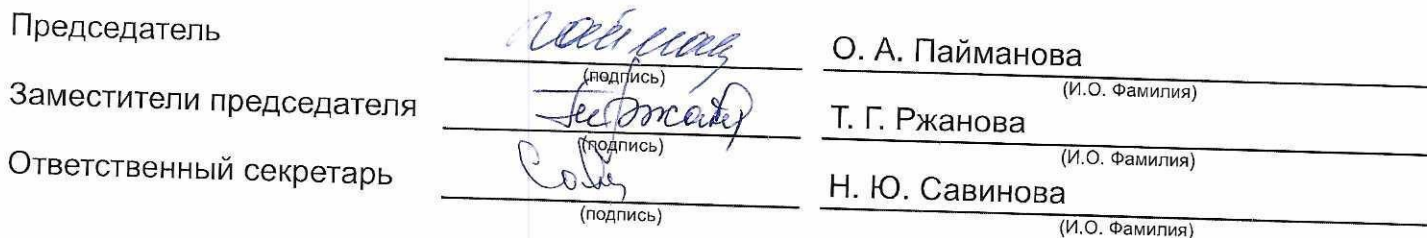 Председатель О. А. Пайманова
(подпись) (И.О. Фамилия)
Заместители председателя Т. Г. Ржанова
(подпись) (И.О. Фамилия)
Ответственный секретарь Н. Ю. Савинова
(подпись) (И.О. Фамилия)